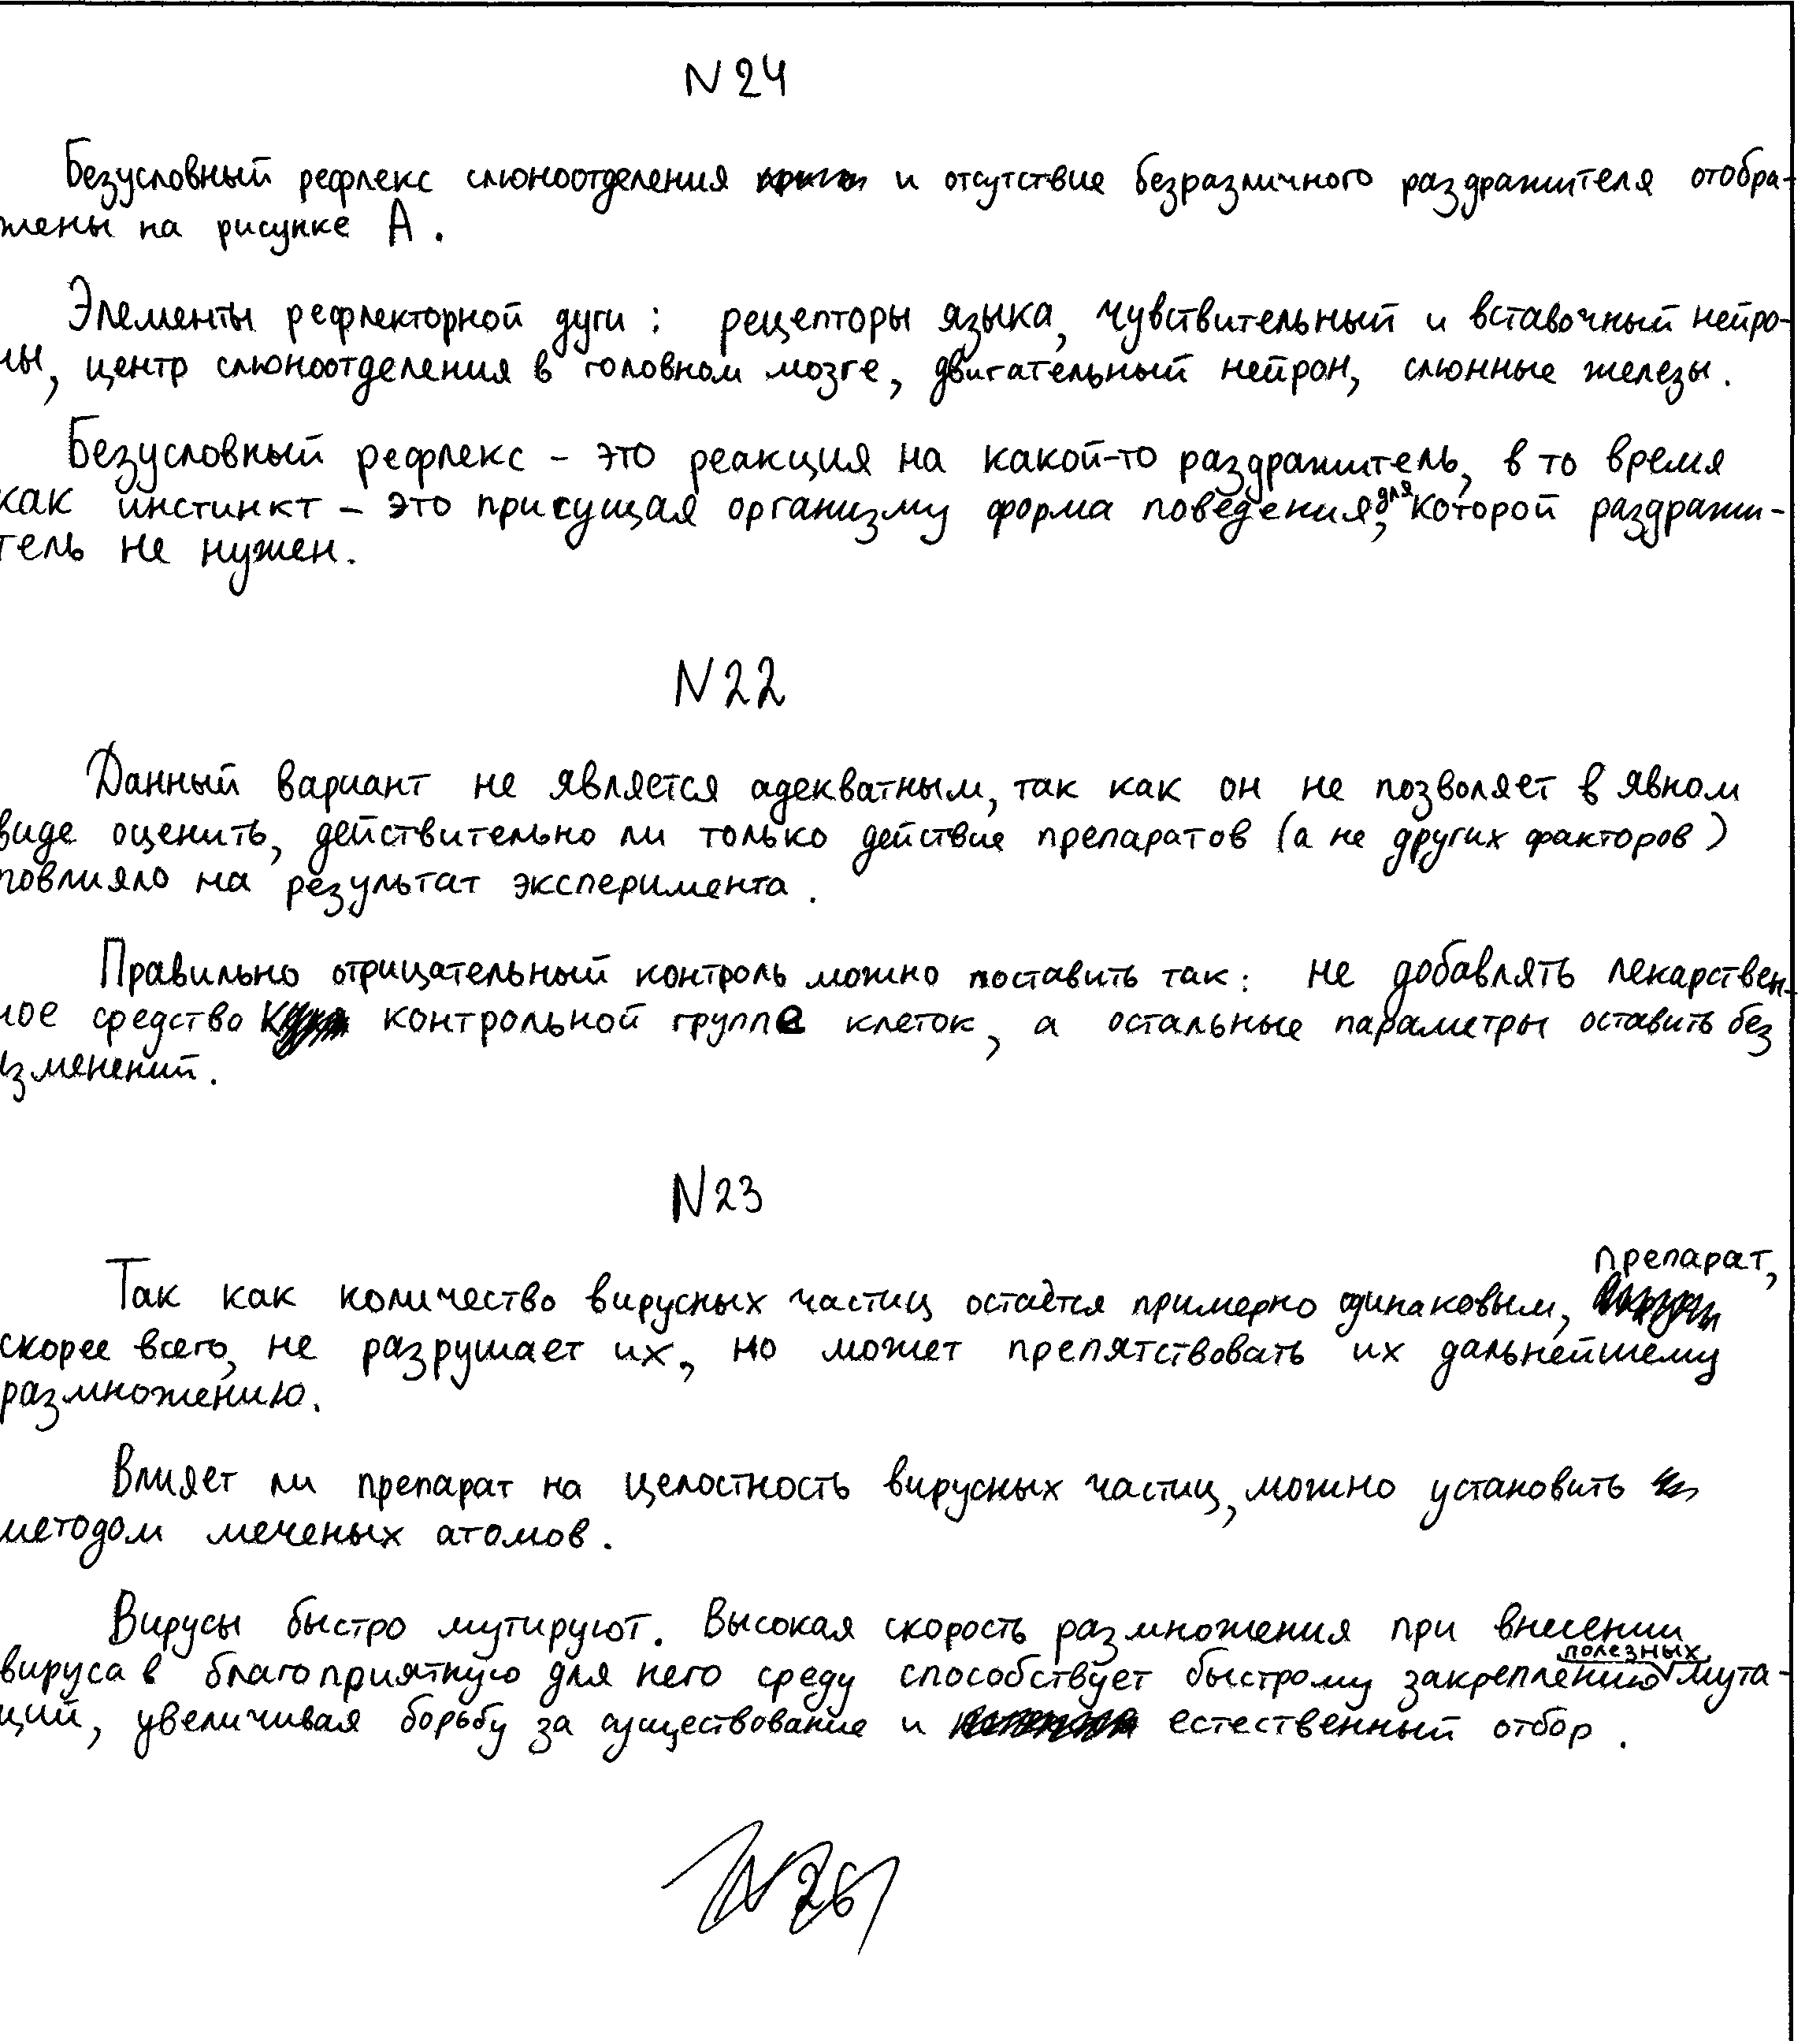 N 24
Безусловный рефлекс слюноотделения и отсутствие безразличного раздражителя отобра-
жены на рисунке А.
Элементы рефлекторной дуги: рецепторы языка, чувствительный и вставочный нейро-
ны, центр слюноотделения в головном мозге, двигательный нейрон, слюнные железы.
Безусловный рефлекс – это реакция на какой-то раздражитель, в то время
как инстинкт – это присущая организму форма поведения, для которой раздражи-
тель не нужен.
N 22
Данный вариант не является адекватным, так как он не позволяет в явном
виде оценить, действительно ли только действие препаратов (а не других факторов)
повлияло на результат эксперимента.
Правильно отрицательный контроль можно поставить так: не добавлять лекарствен-
ное средство контрольной группе клеток, а остальные параметры оставить без
изменений.
N 23
Так как количество вирусных частиц остаётся примерно одинаковым, препарат,
скорее всего, не разрушает их, но может препятствовать их дальнейшему
размножению.
Влияет ли препарат на целостность вирусных частиц, можно установить
методом меченых атомов.
Вирусы быстро мутируют. Высокая скорость размножения при внесении
вируса в благоприятную для него среду способствует быстрому закреплению полезных мута-
ций, увеличивая борьбу за существование и естественный отбор.
N 26